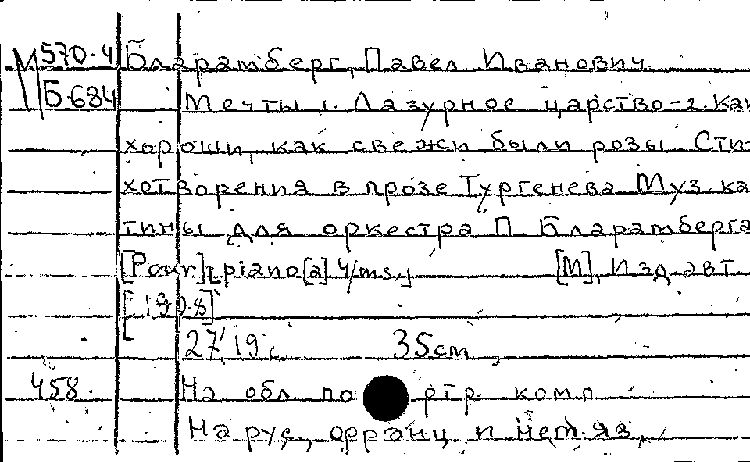 М 570-4 Бларамберг, Павел Иванович.
Б684 Мечты 1. Лазурное царство-2. Как
хороши, как свежи были розы. Сти-
хотворения в прозе Тургенева Муз. ка-
тины для оркестра П. Бларамберга
[Pour] piano [a] 4/ms. [М], Изд. авт.
[190.8]
27, 19 с. 35см
458 На обл. портр. комп.
На рус., франц. и нем. яз.